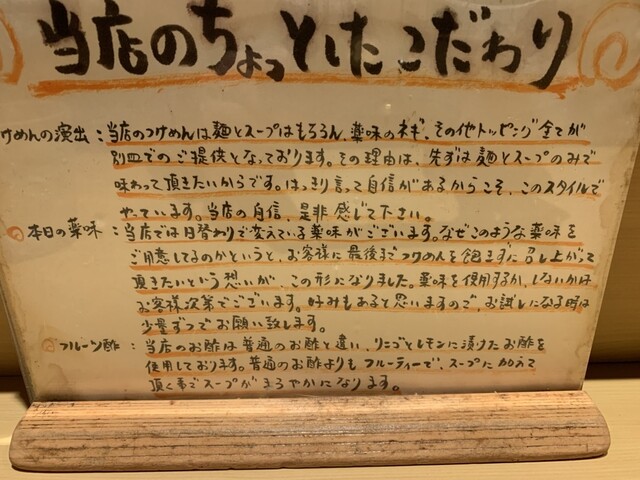 当店のちょっとしたこだわり
けめんの演出：当店のつけめんは麺とスープはもちろん、薬味のネギ、その他トッピング全てが
別皿でのご提供となっております。その理由は、先ずは麺とスープのみで
味わって頂きたいからです。はっきり言って自信があるからこそ、このスタイルで
やっています。当店の自信、是非感じて下さい。
本日の薬味：当店では日替わりで変えている薬味がございます。なぜこのような薬味を
ご用意してるのかというと、お客様に最後までつけめんを飽きずに召し上がって
頂きたいという想いが、この形になりました。薬味を使用するか、しないかは
お客様次第でございます。好みもあると思いますので、お試しになる時は
少量ずつでお願い致します。
フルーツ酢：当店のお酢は普通のお酢と違い、リンゴとレモンに漬けたお酢を
使用しております。普通のお酢よりもフルーティーで、スープに加えて
頂く事でスープがまろやかになります。